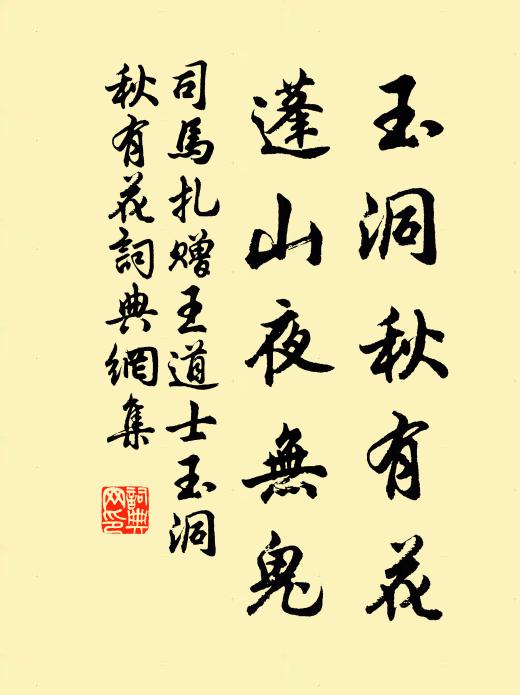 玉洞秋有花
蓬山夜無鬼
司馬扎贈王道士玉洞
秋有花詞典網集
詞典
网印